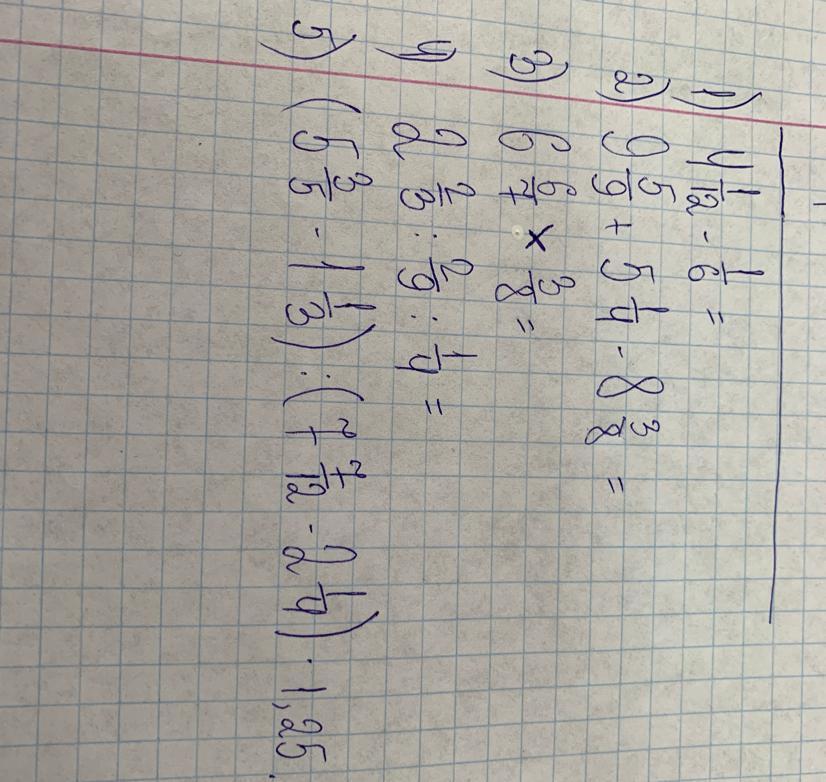 1) 4 1/12 - 1/6 =
2) 9 5/9 + 5 1/4 - 8 3/8 =
3) 6 6/7 × 3/8 =
4) 2 2/3 : 2/9 : 1/4 =
5) (5 3/5 - 1 1/3) : (7 7/12 - 2 1/4) · 1,25.